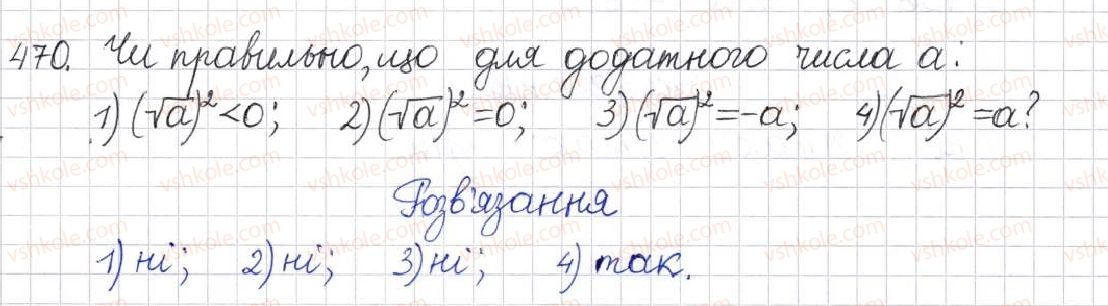 470. Чи правильно, що для додатного числа a:
1) (√a)² < 0; 2) (√a)² = 0; 3) (√a)² = -a; 4) (√a)² = a?
Розв'язання
1) ні; 2) ні; 3) ні; 4) так.